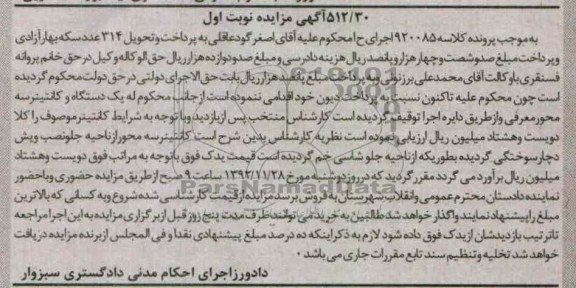 ۵۱۲/۳۰آگهی مزایده نوبت اول
به موجب پرونده کلاسه ۹۲۰۰۸۵ اجرای ح ا محکوم علیه آقای اصغر گودعاقلی به پرداخت وتحویل ۳۱۴ عددسکه بهارآزادی
وپرداخت مبلغ صدوشصت وچهارهزاروپانصدریال هزینه دادرسی و مبلغ صدودوازده هزارریال حق الوکاله وکیل در حق خانم پروانه
فسنقری با وکالت آقای محمدعلی برزنونی وپرداخت مبلغ پانصدهزارریال بابت حق الاجرای دولتی در حق دولت محکوم گردیده
است چون محکوم علیه تاکنون نسبت به پرداخت دیون خود اقدامی ننموده است ازجانب محکوم له یک دستگاه و کانتینر سه
محورمعرفی وازطریق دایره اجرا توقیف گردیده است کارشناس منتخب پس از بازدید وبا توجه به شرایط کانتینرموصوف را کلا
دویست وهشتاد میلیون ریال ارزیابی نموده است نظریه کارشناس بدین شرح است کانتینرسه محورازناحیه جلونصب وپش
دچارسوختگی گردیده بطوریکه ازناحیه جلو شاسی خم گردیده است قیمت یدک فوق باتوجه به مراتب فوق دویست وهشتاد
میلیون ریال برآورد می گردد مقرر گردید که درروزدوشنبه مورخ ۱۳۹۲/۱۱/۲۸ ساعت ۹ صبح ازطریق مزایده حضوری وباحضور
نماینده دادستان محترم عمومی وانقلاب شهرستان به فروش برسد مزایده ازقیمت کارشناسی شده شروع وبه کسانی که بالاترین
مبلغ راپیشنهاد نمایند واگذار خواهدشد طالبین به خرید می توانند ظرف مدت پنج روز قبل ازبرگزاری مزایده به این اجرا مراجعه
تاترتیب بازدیدشان از یدک فوق داده شود لازم به ذکراینکه ده درصد مبلغ پیشنهادی نقدا و فی المجلس ازبرنده مزایده دریافت
خواهدشد تخلیه وتنظیم سند تابع مقررات جاری می باشد .
دادورزاجرای احکام مدنی دادگستری سبزوار
ParsNamadData